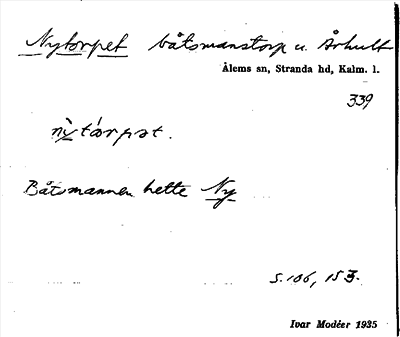 Nytorpet båtsmanstorp u. Århult
Ålems sn, Stranda hd, Kalm. l.
339
nỳtórpət.
Båtsmannen hette Ny
S. 106, 153.
Ivar Modéer 1935